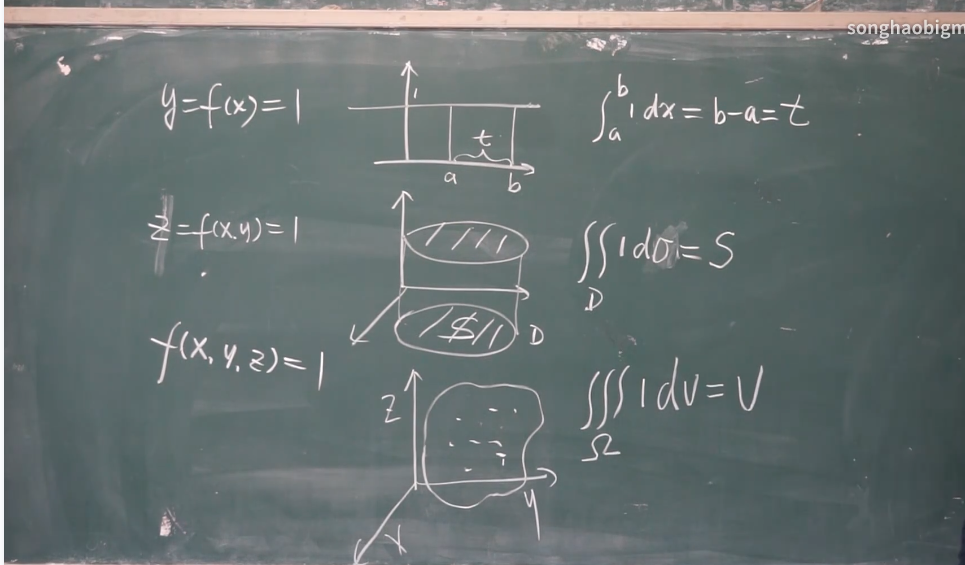 songhaobigm
y=f(x)=1
1
t
a b
∫_a^b 1dx=b-a=t
z=f(x,y)=1
S
D
∬_D 1dσ=S
f(x,y,z)=1
z
y
x
∭_Ω 1dv=V